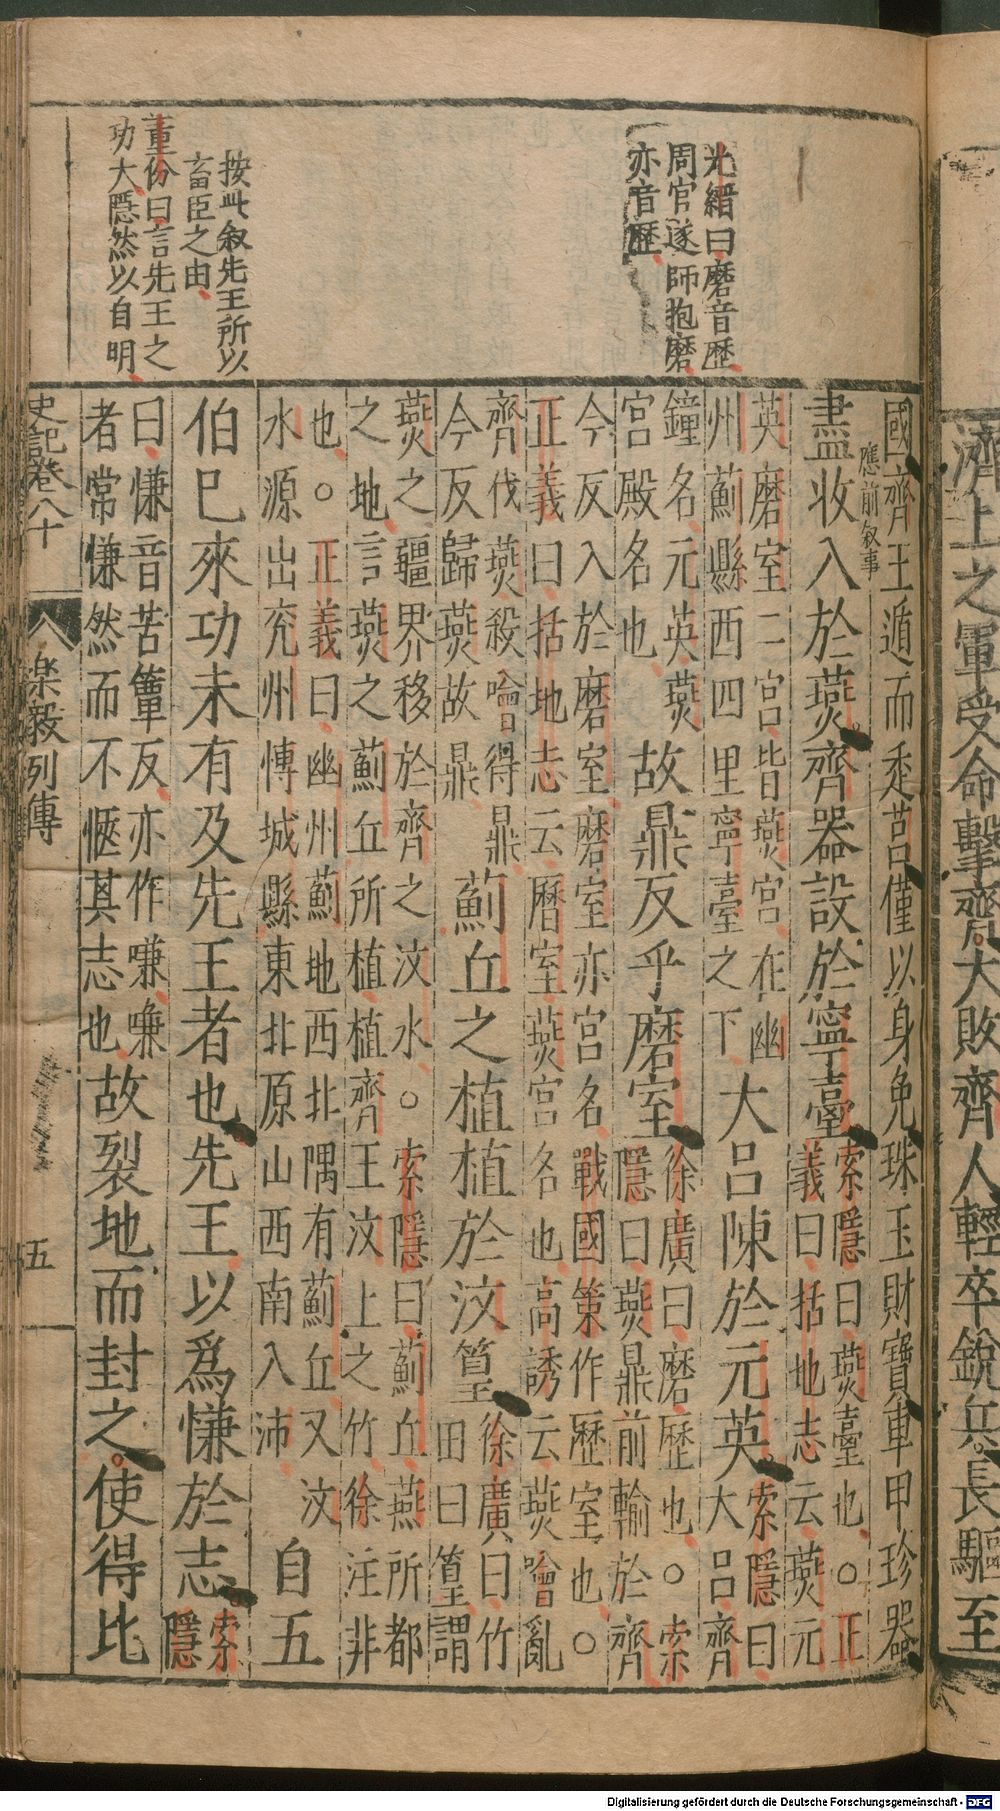 濟上之軍受命擊齊大敗齊人輕卒銳兵長驅至
光縉曰磨音歷
周官遂師抱磨
亦音歷
按此叙先王所以
畜臣之由
董份曰言先王之
功大隱然以自明
國齊王遁而走莒僅以身免珠玉財寶車甲珍器
應前叙事
盡收入於燕齊器設於寧臺
索隱曰燕臺也○正
義曰括地志云燕元
英磨室二宮皆燕宮在幽
州薊縣西四里寧臺之下
大呂陳於元英
索隱曰
大呂齊
鐘名元英燕
宮殿名也
故鼎反乎磨室
徐廣曰磨歷也○索
隱曰燕鼎前輸於齊
今反入於磨室磨室亦宮名戰國策作歷室也○
正義曰括地志云曆室燕宮名也高誘云燕噲亂
齊伐燕殺噲得鼎
今反歸燕故鼎
薊丘之植植於汶篁
徐廣曰竹
田曰篁謂
燕之疆界移於齊之汶水○索隱曰薊丘燕所都
之地言燕之薊丘所植植齊王汶上之竹徐注非
也○正義曰幽州薊地西北隅有薊丘又汶
水源出兗州博城縣東北原山西南入沛
自五
伯已來功未有及先王者也先王以爲慊於志
索
隱
曰慊音苦簟反亦作嗛嗛
者常慊然而不愜其志也
故裂地而封之使得比
史記卷八十
樂毅列傳
五
Digitalisierung gefördert durch die Deutsche Forschungsgemeinschaft - DFG